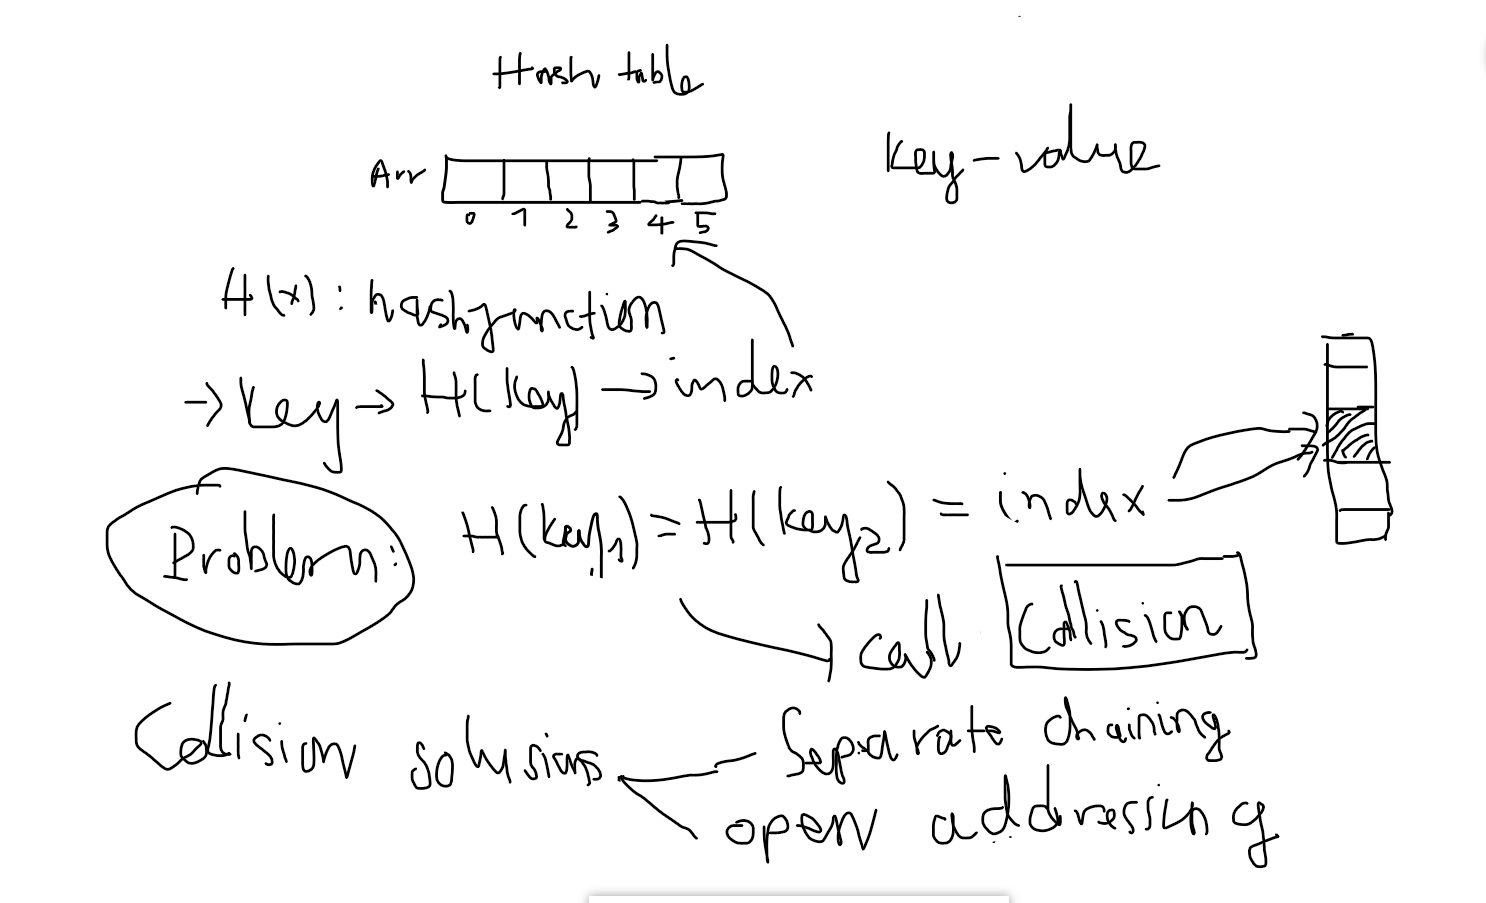 Hash table
key-value
Arr
0 1 2 3 4 5
H(x): hash function
→ key → H(key) → index
Problem: H(key1) = H(key2) = index
call Collision
Collision solusions
Separate chaining
open addressing